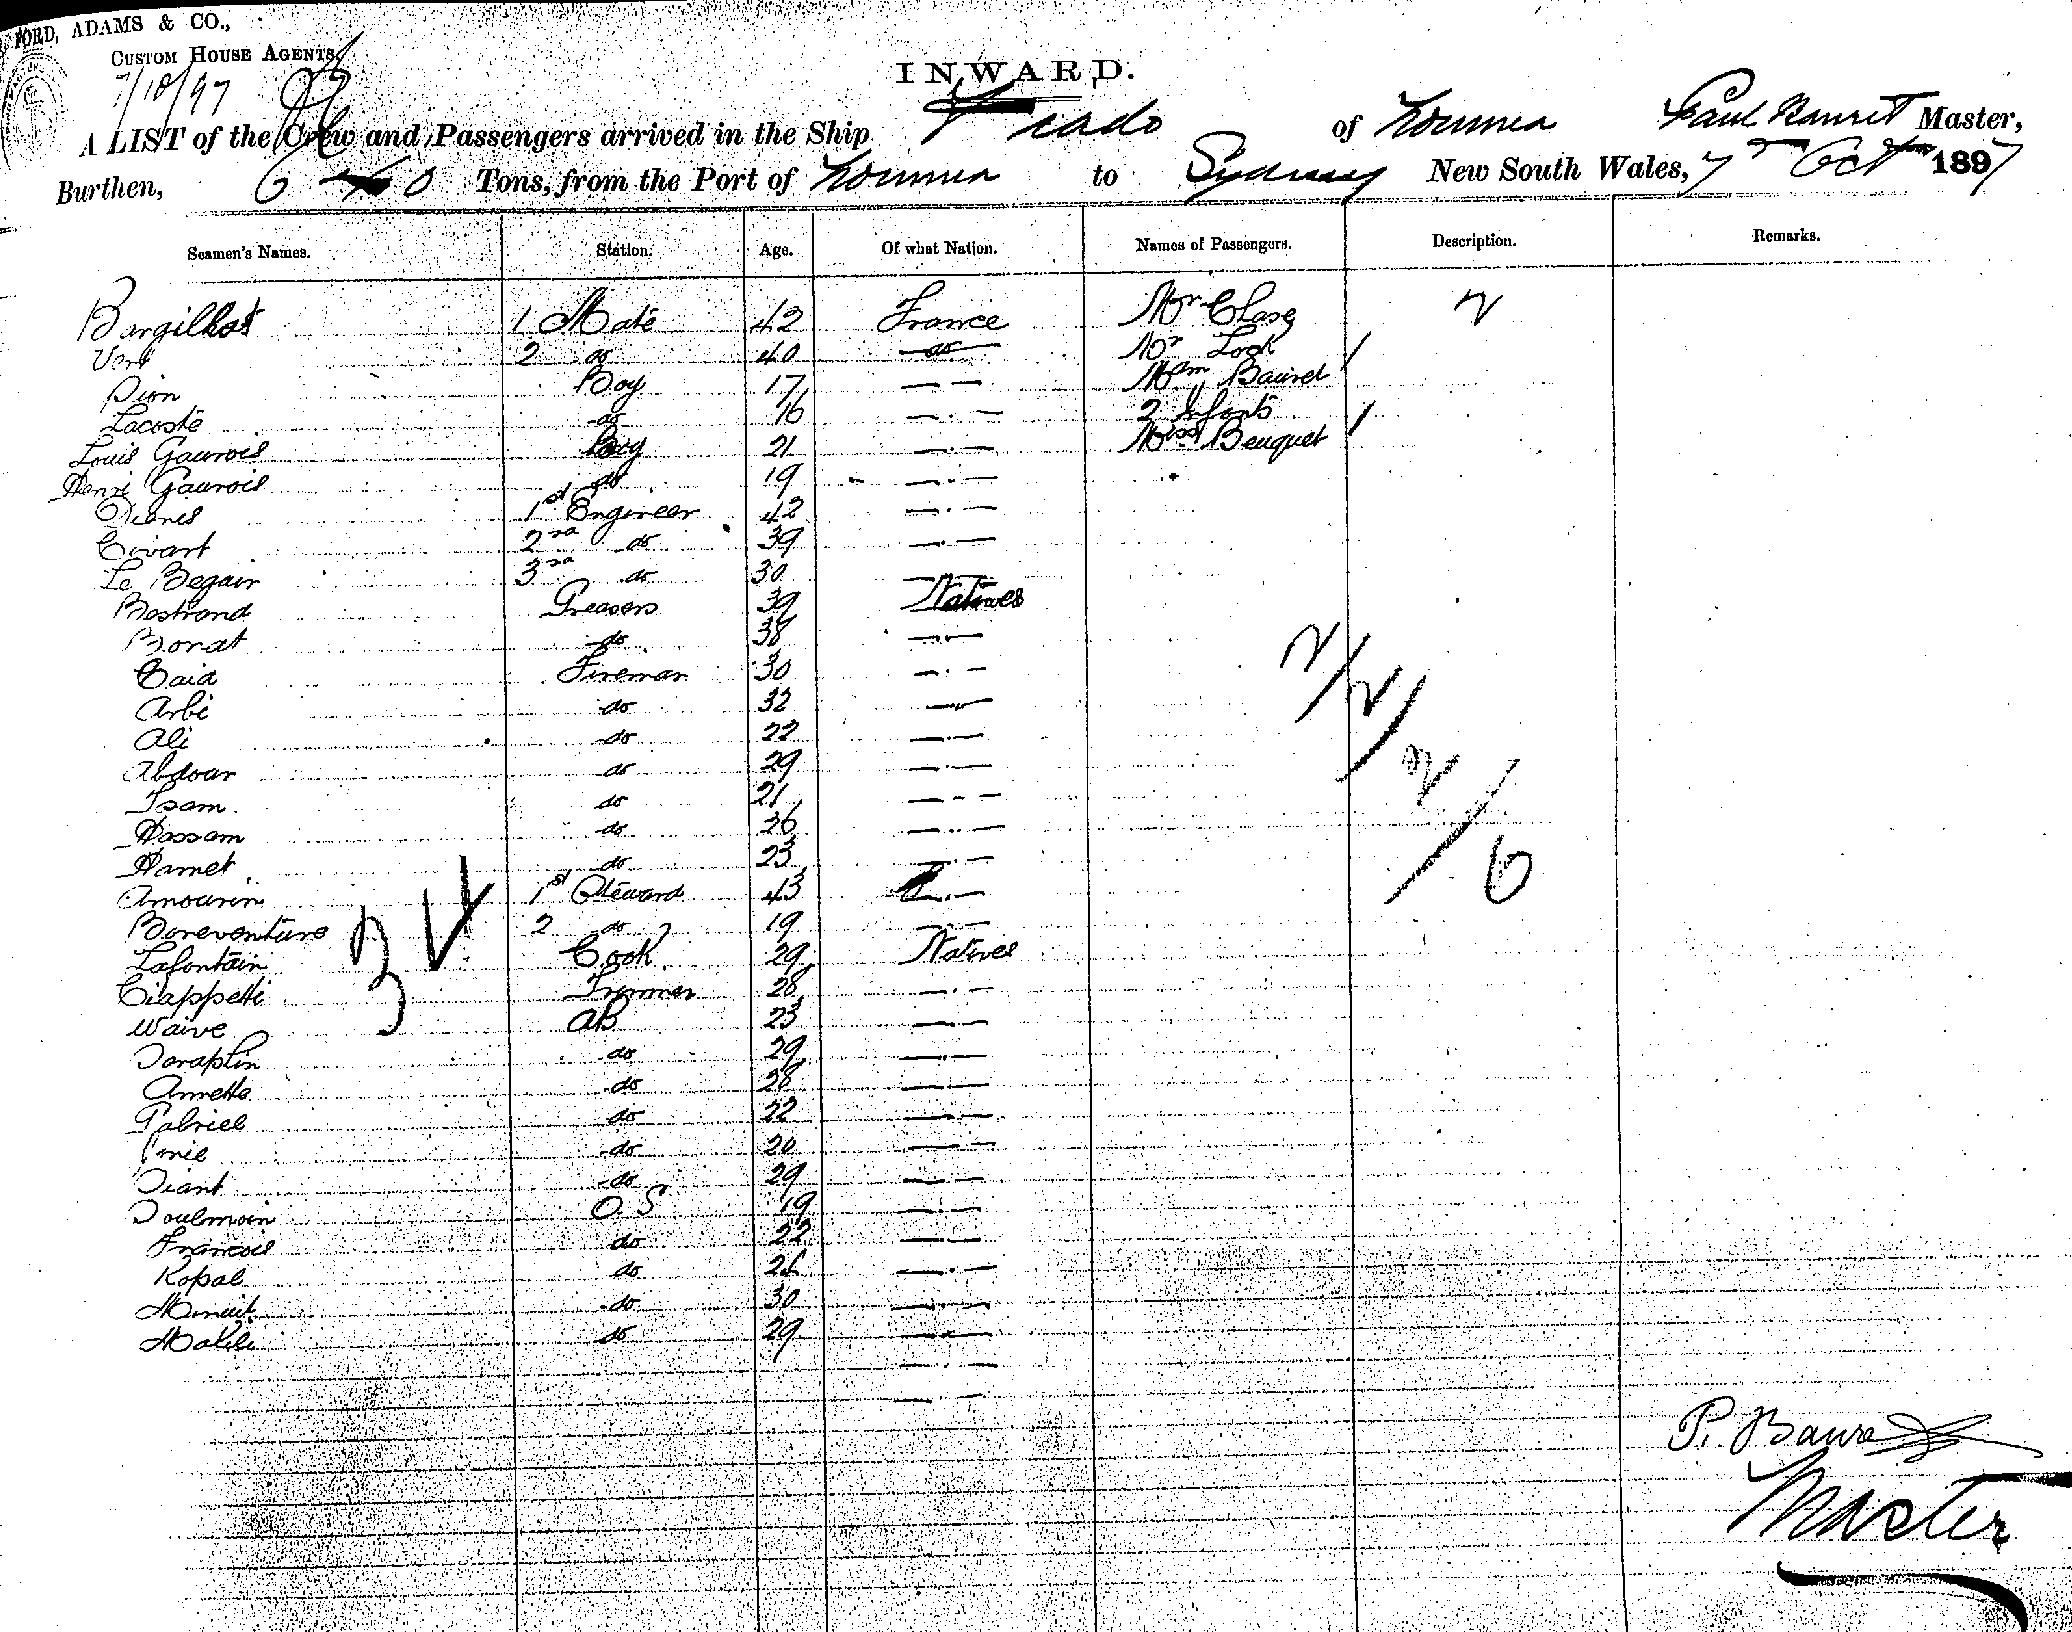 FORD, ADAMS & CO.,
CUSTOM HOUSE AGENTS
7/10/97
INWARD.
A LIST of the Crew and Passengers arrived in the Ship of Noumea Paul Master,
Burthen, Tons, from the Port of Noumea to Sydney New South Wales, 7 Oct 1897
Seamen's Names. Station. Age. Of what Nation. Names of Passengers. Description. Remarks.
Bargillat 1 Mate 42 France Mr Chase 2
Vert 2 do 40 do Mr Lock /
Pion Boy 17 — — Mam Bauret
Lacoste do 16 — . — 2 Infants /
Louis Gaurois Boy 21 — . — Miss Beuquet
Henri Gaurois do 19 — . —
1st Engineer 42 — . —
Civart 2nd do 39 — . —
Le Begair 3rd do 30
Bertrand Greasers 39 Natives
Bonat do 38 — . —
Said Fireman 30 — . —
Arbi do 32 — . —
Ali do 22 — . —
Abdoar do 29 — . —
Isam do 21 — . —
Hassam do 26 — . —
Hamet do 23 — . —
Amourin 1st Steward 43
Boneventure 2 do 19 — . —
Lafontain Cook 29 Natives
Ciappetti Trimmer 28 — . —
Waive AB 23 — . —
Taraplin do 29 — . —
Annette do 28 — . —
Gabriel do 22 — . —
do 20 — . —
Tiant do 29 — . —
Toulmoin O. S 19 — . —
Francois do 22 — . —
Kopal do 26 — . —
Minuit do 30 — . —
Malili do 29 — . —
34
2/2/2/6
P. Bauret
Master